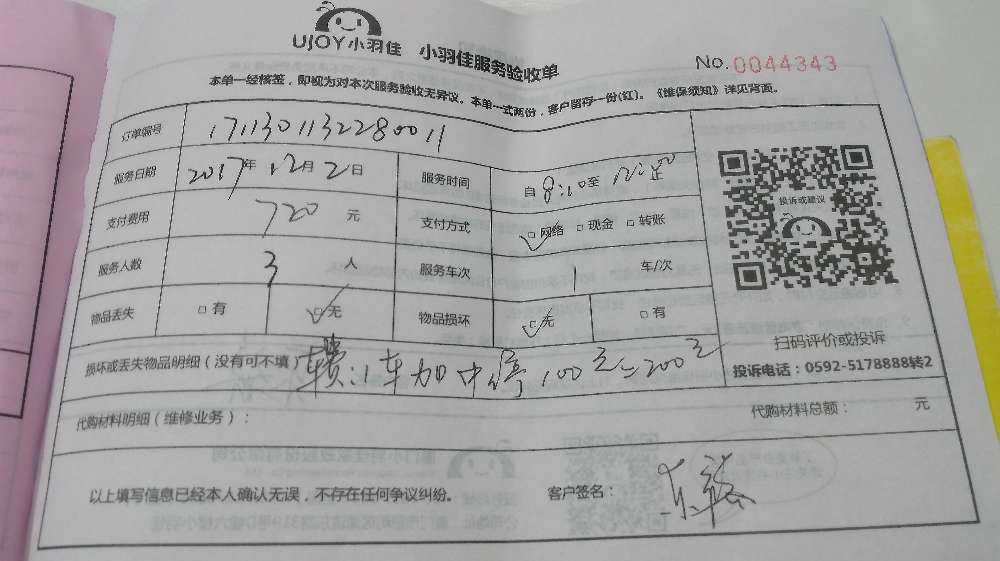 UJOY小羽佳 小羽佳服务验收单 No.0044343
本单一经核签，即视为对本次服务验收无异议。本单一式两份，客户留存一份(红)。《维保须知》详见背面。
订单编号 1711301132280011
服务日期 2017年 12月 2日 服务时间 自 8:10至 12:00止
支付费用 720 元 支付方式 □网络 □现金 □转账
服务人数 3 人 服务车次 车/次
物品丢失 □有 □无 物品损坏 □无 □有
投诉或建议
扫码评价或投诉
投诉电话：0592-5178888转2
损坏或丢失物品明细（没有可不填） 车加中停100元=200元
代购材料明细（维修业务）： 代购材料总额： 元
以上填写信息已经本人确认无误，不存在任何争议纠纷。 客户签名：